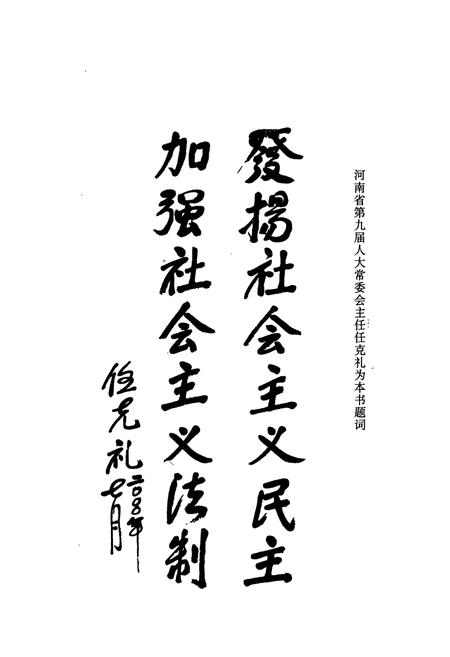 河南省第九届人大常委会主任任克礼为本书题词
發揚社会主义民主
加强社会主义法制
任克礼
二〇〇〇年
七月